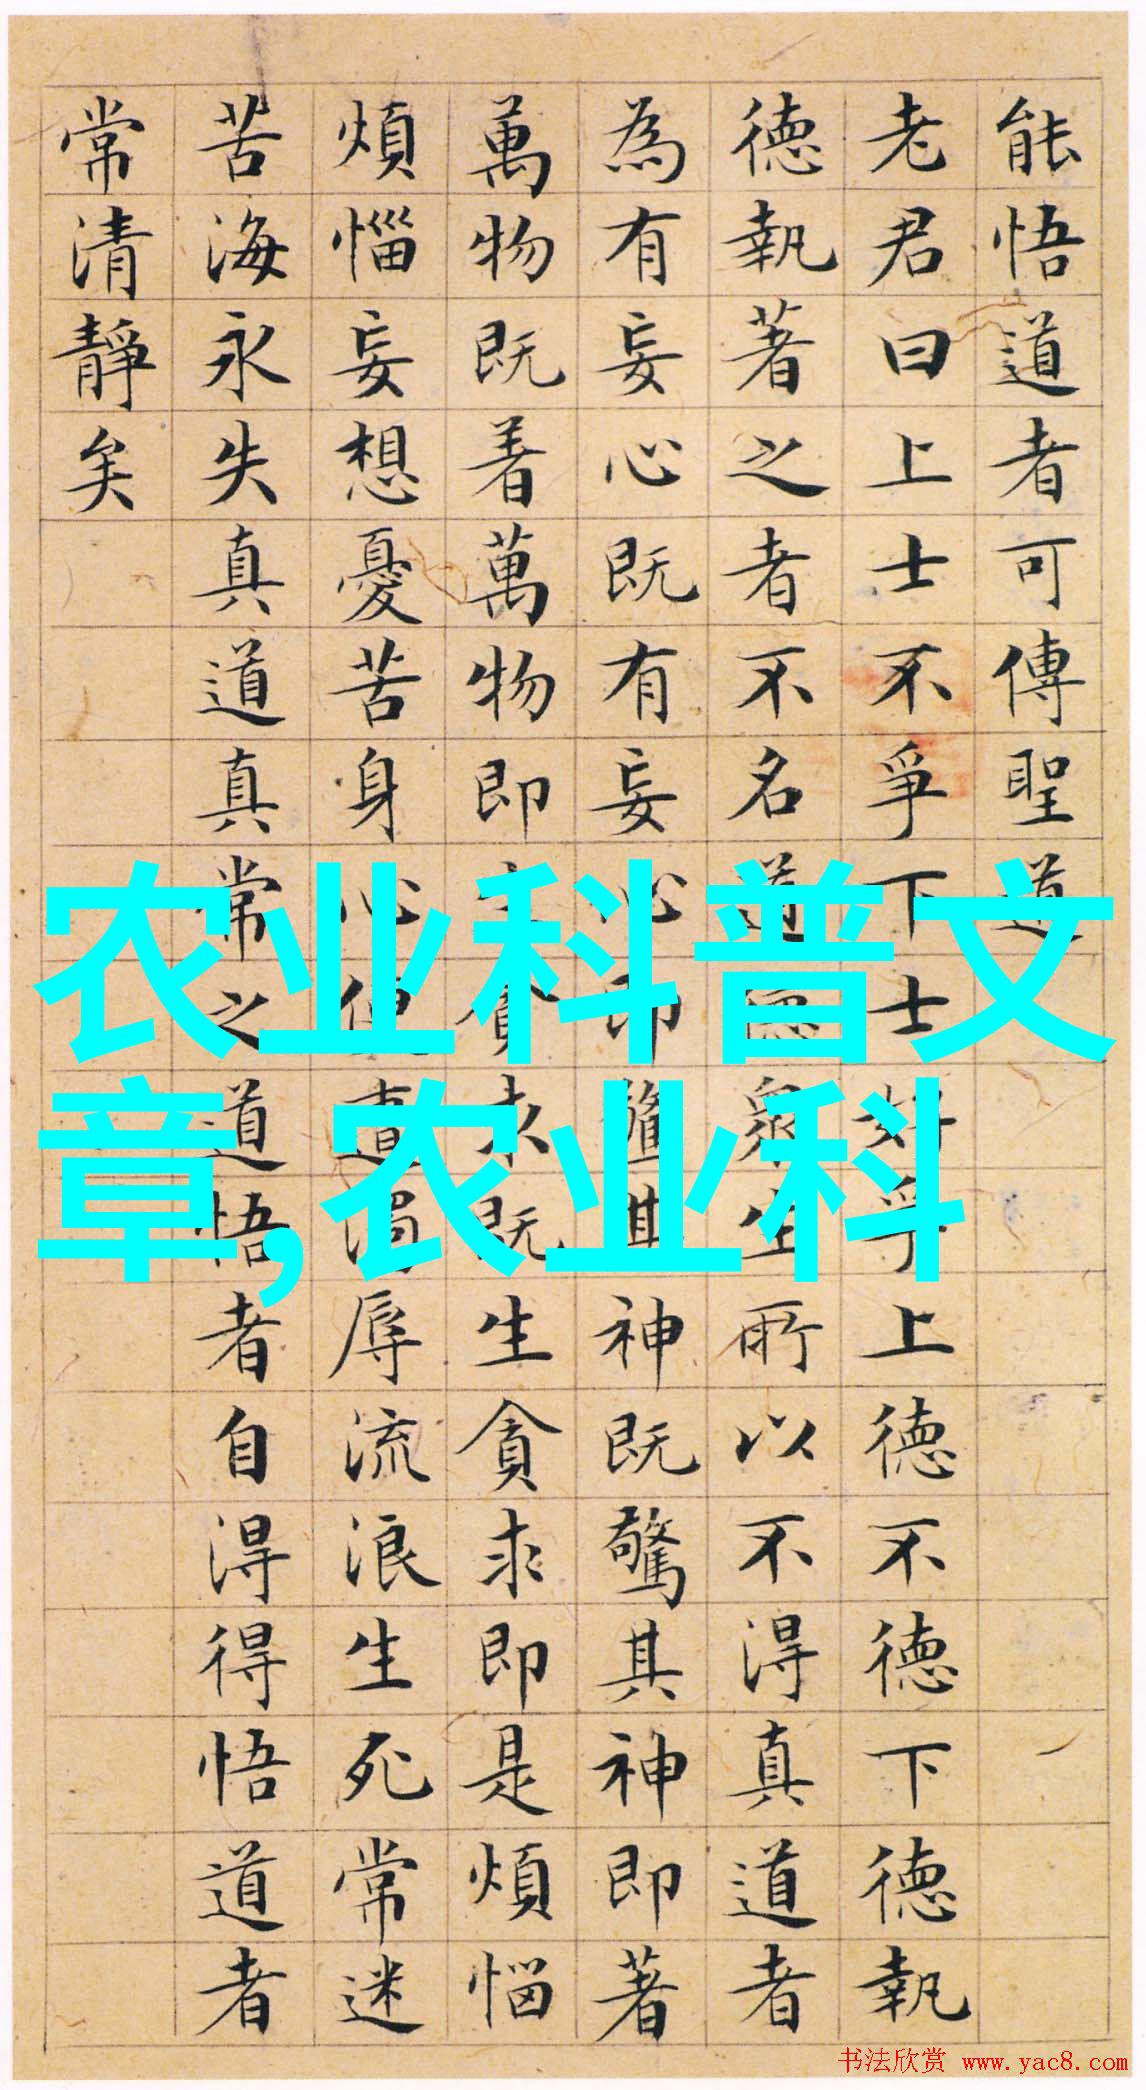 能悟道者可傳聖道
老君曰上士不爭下士好爭上德不德下德執
德執著之者不名道衆生所以不得真道者
為有妄心既有妄心即驚其神既驚其神即著
萬物既着萬物即生貪求既生貪求即是煩惱
煩惱妄想憂苦身心便遭濁辱流浪生死常迷
苦海永失真道真常之道悟者自得得悟道者
常清靜矣
农业科普文
章,农业科
书法欣赏 www.yac8.com